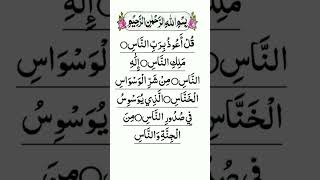 بِسْمِ اللهِ الرَّحْمٰنِ الرَّحِيْمِ
قُلْ أَعُوْذُ بِرَبِّ النَّاسِ○
مَلِكِ النَّاسِ○ إِلٰهِ
النَّاسِ○ مِنْ شَرِّ الْوَسْوَاسِ
الْخَنَّاسِ○ الَّذِي يُوَسْوِسُ
فِي صُدُورِ النَّاسِ○ مِنَ
الْجِنَّةِ وَالنَّاسِ